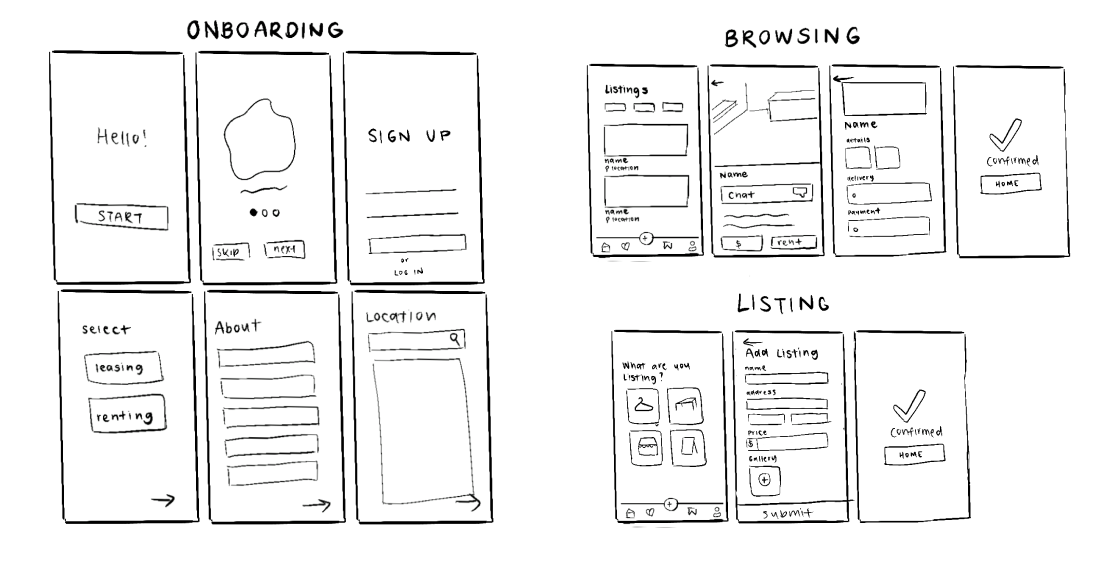 ONBOARDING
Hello!
START
skip
next
SIGN UP
or
LOG IN
select
leasing
renting
About
Location
BROWSING
Listings
name
location
name
location
Name
Chat
$
rent
Name
details
delivery
Payment
confirmed
HOME
LISTING
What are you
Listing?
Add Listing
name
address
Price
$
Gallery
submit
confirmed
HOME